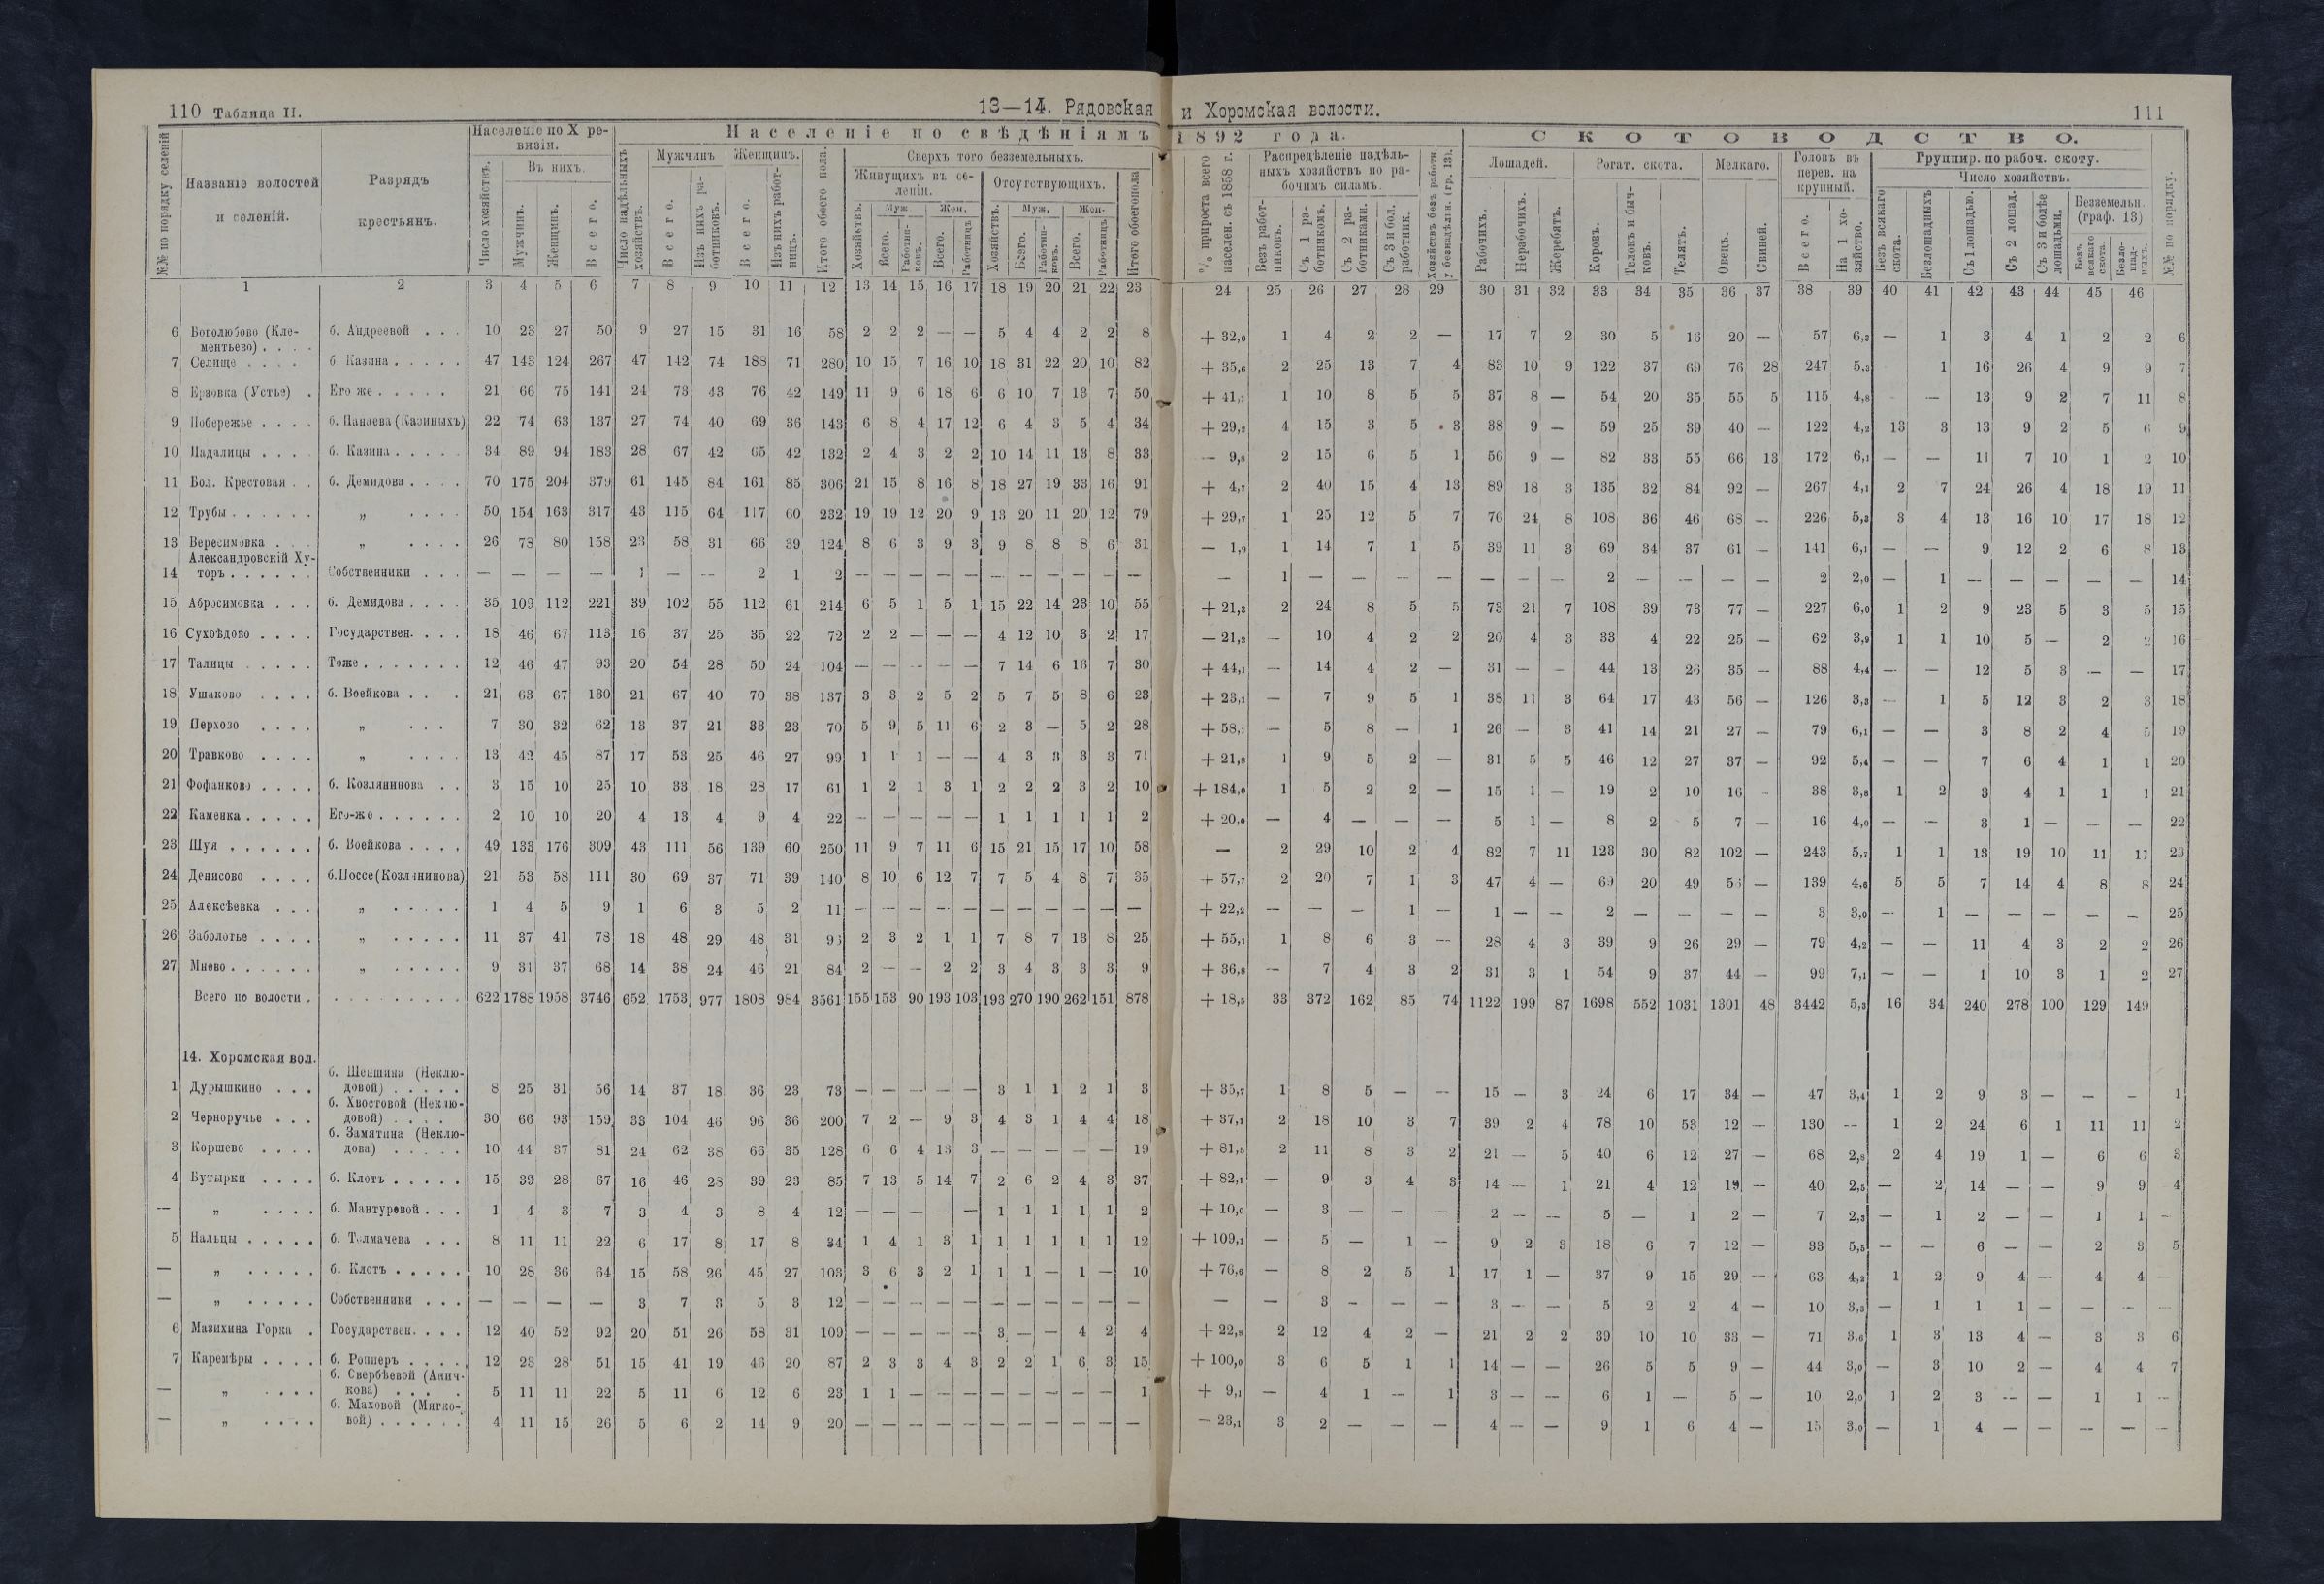 110 Таблица II.
13—14. Рядовская и Хоромская волости.
111
№№ по порядку селеній
Названіе волостей и селеній.
Разрядъ крестьянъ.
Населеніе по X ревизіи.
Число хозяйствъ.
Въ нихъ.
Мужчинъ.
Женщинъ.
Всего.
Населеніе по свѣдѣніямъ 1892 года.
Число надѣльныхъ хозяйствъ.
Мужчинъ
Всего.
Изъ нихъ работниковъ.
Женщинъ.
Всего.
Изъ нихъ работницъ.
Итого обоего пола.
Сверхъ того безземельныхъ.
Живущихъ въ селеніи.
Хозяйствъ.
Муж.
Всего.
Работниковъ.
Жен.
Всего.
Работницъ
Отсутствующихъ.
Хозяйствъ.
Муж.
Всего.
Работниковъ.
Жен.
Всего.
Работницъ
Итого обоего пола
% прироста всего населен. съ 1858 г.
Распредѣленіе надѣльныхъ хозяйствъ по рабочимъ силамъ.
Безъ работниковъ.
Съ 1 работникомъ.
Съ 2 работниками.
Съ 3 и бол. работник.
Хозяйствъ безъ работн. у безнадѣльн. (гр. 13).
СКОТОВОДСТВО.
Лошадей.
Рабочихъ.
Нерабочихъ.
Жеребятъ.
Рогат. скота.
Коровъ.
Телокъ и бычковъ.
Телятъ.
Мелкаго.
Овецъ.
Свиней.
Головъ въ перев. на крупный.
Всего.
На 1 хозяйство.
Группир. по рабоч. скоту.
Число хозяйствъ.
Безъ всякаго скота.
Безлошадныхъ
Съ 1 лошадью.
Съ 2 лошад.
Съ 3 и болѣе лошадьми.
Безземельн. (граф. 13)
Безъ всякаго скота.
Безлошадныхъ.
№№ по порядку.
1 2 3 4 5 6 7 8 9 10 11 12 13 14 15 16 17 18 19 20 21 22 23 24 25 26 27 28 29 30 31 32 33 34 35 36 37 38 39 40 41 42 43 44 45 46
6 Боголюбово (Клементьево) . . . . б. Андреевой . . . 10 23 27 50 9 27 15 31 16 58 2 2 2 — — 5 4 4 2 2 8 + 32,0 1 4 2 2 — 17 7 2 30 5 16 20 — 57 6,3 — 1 3 4 1 2 2 6
7 Селище . . . . б. Казина . . . . . 47 143 124 267 47 142 74 188 71 280 10 15 7 16 10 18 31 22 20 10 82 + 35,6 2 25 13 7 4 83 10 9 122 37 69 76 28 247 5,3 1 16 26 4 9 9 7
8 Ерзовка (Устье) . Его же . . . . . 21 66 75 141 24 73 43 76 42 149 11 9 6 18 6 6 10 7 13 7 50 + 41,1 1 10 8 5 5 37 8 — 54 20 35 55 5 115 4,8 - — 13 9 2 7 11 8
9 Побережье . . . . б. Панаева (Казиныхъ) 22 74 63 137 27 74 40 69 36 143 6 8 4 17 12 6 4 3 5 4 34 + 29,2 4 15 3 5 3 38 9 — 59 25 39 40 — 122 4,2 13 3 13 9 2 5 6 9
10 Падалицы . . . . б. Казина . . . . . 34 89 94 183 28 67 42 65 42 132 2 4 3 2 2 10 14 11 13 8 33 — 9,8 2 15 6 5 1 56 9 — 82 33 55 66 13 172 6,1 — — 11 7 10 1 2 10
11 Бол. Крестовая . . б. Демидова . . . . 70 175 204 379 61 145 84 161 85 306 21 15 8 16 8 18 27 19 33 16 91 + 4,7 2 40 15 4 13 89 18 3 135 32 84 92 — 267 4,1 2 7 24 26 4 18 19 11
12 Трубы . . . . . . „ . . . . 50 154 163 317 43 115 64 117 60 232 19 19 12 20 9 13 20 11 20 12 79 + 29,7 1 25 12 5 7 76 24 8 108 36 46 68 — 226 5,3 3 4 13 16 10 17 18 12
13 Вересимовка . . . „ . . . . 26 78 80 158 23 58 31 66 39 124 8 6 3 9 3 9 8 8 8 6 31 — 1,9 1 14 7 1 5 39 11 3 69 34 37 61 — 141 6,1 — — 9 12 2 6 8 13
14 Александровскій Хуторъ . . . . . . Собственники . . . — — — — 1 — — 2 1 2 — — — — — — — — — — — — 1 — — — — — — — 2 — — — — 2 2,0 — 1 — — — — — 14
15 Абросимовка . . . б. Демидова . . . . 35 109 112 221 39 102 55 112 61 214 6 5 1 5 1 15 22 14 23 10 55 + 21,3 2 24 8 5 5 73 21 7 108 39 73 77 — 227 6,0 1 2 9 23 5 3 5 15
16 Сухоѣдово . . . . Государствен. . . . 18 46 67 113 16 37 25 35 22 72 2 2 — — — 4 12 10 3 2 17 — 21,2 — 10 4 2 2 20 4 3 33 4 22 25 — 62 3,9 1 1 10 5 — 2 2 16
17 Талицы . . . . . Тоже . . . . . . . 12 46 47 93 20 54 28 50 24 104 — — — — — 7 14 6 16 7 30 + 44,1 — 14 4 2 — 31 — — 44 13 26 35 — 88 4,4 — — 12 5 3 — — 17
18 Ушаково . . . . б. Воейкова . . . 21 63 67 130 21 67 40 70 38 137 3 3 2 5 2 5 7 5 8 6 23 + 23,1 — 7 9 5 1 38 11 3 64 17 43 56 — 126 3,3 — 1 5 12 3 2 3 18
19 Перхозо . . . . „ . . . 7 30 32 62 13 37 21 33 23 70 5 9 5 11 6 2 3 — 5 2 28 + 58,1 — 5 8 — 1 26 — 3 41 14 21 27 — 79 6,1 — — 3 8 2 4 5 19
20 Травково . . . . „ . . . . 13 42 45 87 17 53 25 46 27 99 1 1 1 — — 4 3 3 3 3 71 + 21,8 1 9 5 2 — 31 5 5 46 12 27 37 — 92 5,4 — — 7 6 4 1 1 20
21 Фофанково . . . . б. Козлянинова . . 3 15 10 25 10 33 18 28 17 61 1 2 1 3 1 2 2 2 3 2 10 + 184,0 1 5 2 2 — 15 1 — 19 2 10 16 - 38 3,8 1 2 3 4 1 1 1 21
22 Каменка . . . . . Его-же . . . . . . 2 10 10 20 4 13 4 9 4 22 — — — — — 1 1 1 1 1 2 + 20,0 — 4 — — — 5 1 — 8 2 5 7 — 16 4,0 — — 3 1 — — — 22
23 Шуя . . . . . . б. Воейкова . . . . 49 133 176 309 43 111 56 139 60 250 11 9 7 11 6 15 21 15 17 10 58 — 2 29 10 2 4 82 7 11 123 30 82 102 — 243 5,7 1 1 13 19 10 11 11 23
24 Денисово . . . . б. Поссе (Козлянинова) 21 53 58 111 30 69 37 71 39 140 8 10 6 12 7 7 5 4 8 7 35 + 57,7 2 20 7 1 3 47 4 — 69 20 49 — 139 4,6 5 5 7 14 4 8 8 24
25 Алексѣевка . . . „ . . . . . 1 4 5 9 1 6 3 5 2 11 — — — — — — — — — — — + 22,2 — — — 1 — 1 — — 2 — — — — 3 3,0 — 1 — — — — — 25
26 Заболотье . . . . „ . . . . . 11 37 41 78 18 48 29 48 31 2 3 2 1 1 7 8 7 13 8 25 + 55,1 1 8 6 3 — 28 4 3 39 9 26 29 — 79 4,2 — — 11 4 3 2 2 26
27 Мнево . . . . . . „ . . . . . 9 31 37 68 14 38 24 46 21 84 2 — — 2 2 3 4 3 3 3 9 + 36,8 — 7 4 3 2 31 3 1 54 9 37 44 — 99 7,1 — — 1 10 3 1 2 27
Всего по волости . . . . . . . . . . . 622 1788 1958 3746 652 1753 977 1808 984 3561 155 153 90 193 103 193 270 190 262 151 878 + 18,5 33 372 162 85 74 1122 199 87 1698 552 1031 1301 48 3442 5,3 16 34 240 278 100 129 149
14. Хоромская вол.
1 Дурышкино . . . б. Шеншина (Неклюдовой) . . . . . 8 25 31 56 14 37 18 36 23 73 — — — — — 3 1 1 2 1 3 + 35,7 1 8 5 — — 15 — 3 24 6 17 34 — 47 3,4 1 2 9 3 — — — 1
2 Черноручье . . . б. Хвостовой (Неклюдовой) . . . . 30 66 93 159 33 104 46 96 36 200 7 2 — 9 3 4 3 1 4 4 18 + 37,1 2 18 10 3 7 39 2 4 78 10 53 12 — 130 -- 1 2 24 6 1 11 11 2
3 Коршево . . . . б. Замятина (Неклюдова) . . . . . 10 44 37 81 24 62 38 66 35 128 6 6 4 13 3 — — — — — 19 + 81,5 2 11 8 3 2 21 — 5 40 6 12 27 — 68 2,8 2 4 19 1 — 6 6 3
4 Бутырки . . . . б. Клотъ . . . . . 15 39 28 67 16 46 28 39 23 85 7 13 5 14 7 2 6 2 4 3 37 + 82,1 — 9 3 4 3 14 — 1 21 4 12 19 — 40 2,5 — 2 14 — — 9 9 4
— „ . . . . б. Мантуровой . . . 1 4 3 7 3 4 3 8 4 12 — — — — — 1 1 1 1 1 2 + 10,0 — 3 — — — 2 — — 5 — 1 2 — 7 2,3 — 1 2 — — 1 1 —
5 Нальцы . . . . . б. Толмачева . . . 8 11 11 22 6 17 8 17 8 34 1 4 1 3 1 1 1 1 1 1 12 + 109,1 — 5 — 1 — 9 2 3 18 6 7 12 — 33 5,5 — — 6 — — 2 3 5
— „ . . . . . б. Клотъ . . . . . 10 28 36 64 15 58 26 45 27 103 3 6 3 2 1 1 1 — 1 — 10 + 76,6 — 8 2 5 1 17 1 — 37 9 15 29 — 63 4,2 1 2 9 4 — 4 4 —
— „ . . . . . Собственники . . . — — — — 3 7 3 5 3 12 — — — — — — — — — — — — — 3 — — — 3 — — 5 2 2 4 — 10 3,3 — 1 1 1 — — — —
6 Мазихина Горка . Государствен. . . . 12 40 52 92 20 51 26 58 31 109 — — — — — 3 — — 4 2 4 + 22,8 2 12 4 2 — 21 2 2 39 10 10 33 — 71 3,6 1 3 13 4 — 3 3 6
7 Каремѣры . . . . б. Ропперъ . . . . 12 23 28 51 15 41 19 46 20 87 2 3 3 4 3 2 2 1 6 3 15 + 100,0 3 6 5 1 1 14 — — 26 5 5 9 — 44 3,0 — 3 10 2 — 4 4 7
— „ . . . . б. Свербѣевой (Аничкова) . . . . 5 11 11 22 5 11 6 12 6 23 1 1 — — — — — — — — 1 + 9,1 — 4 1 — 1 3 — — 6 1 — 5 — 10 2,0 1 2 3 — — 1 1 —
— „ . . . . б. Маховой (Мягковой) . . . . . . 4 11 15 26 5 6 2 14 9 20 — — — — — — — — — — — — 23,1 3 2 — — — 4 — — 9 1 6 4 — 15 3,0 — 1 4 — — — — —